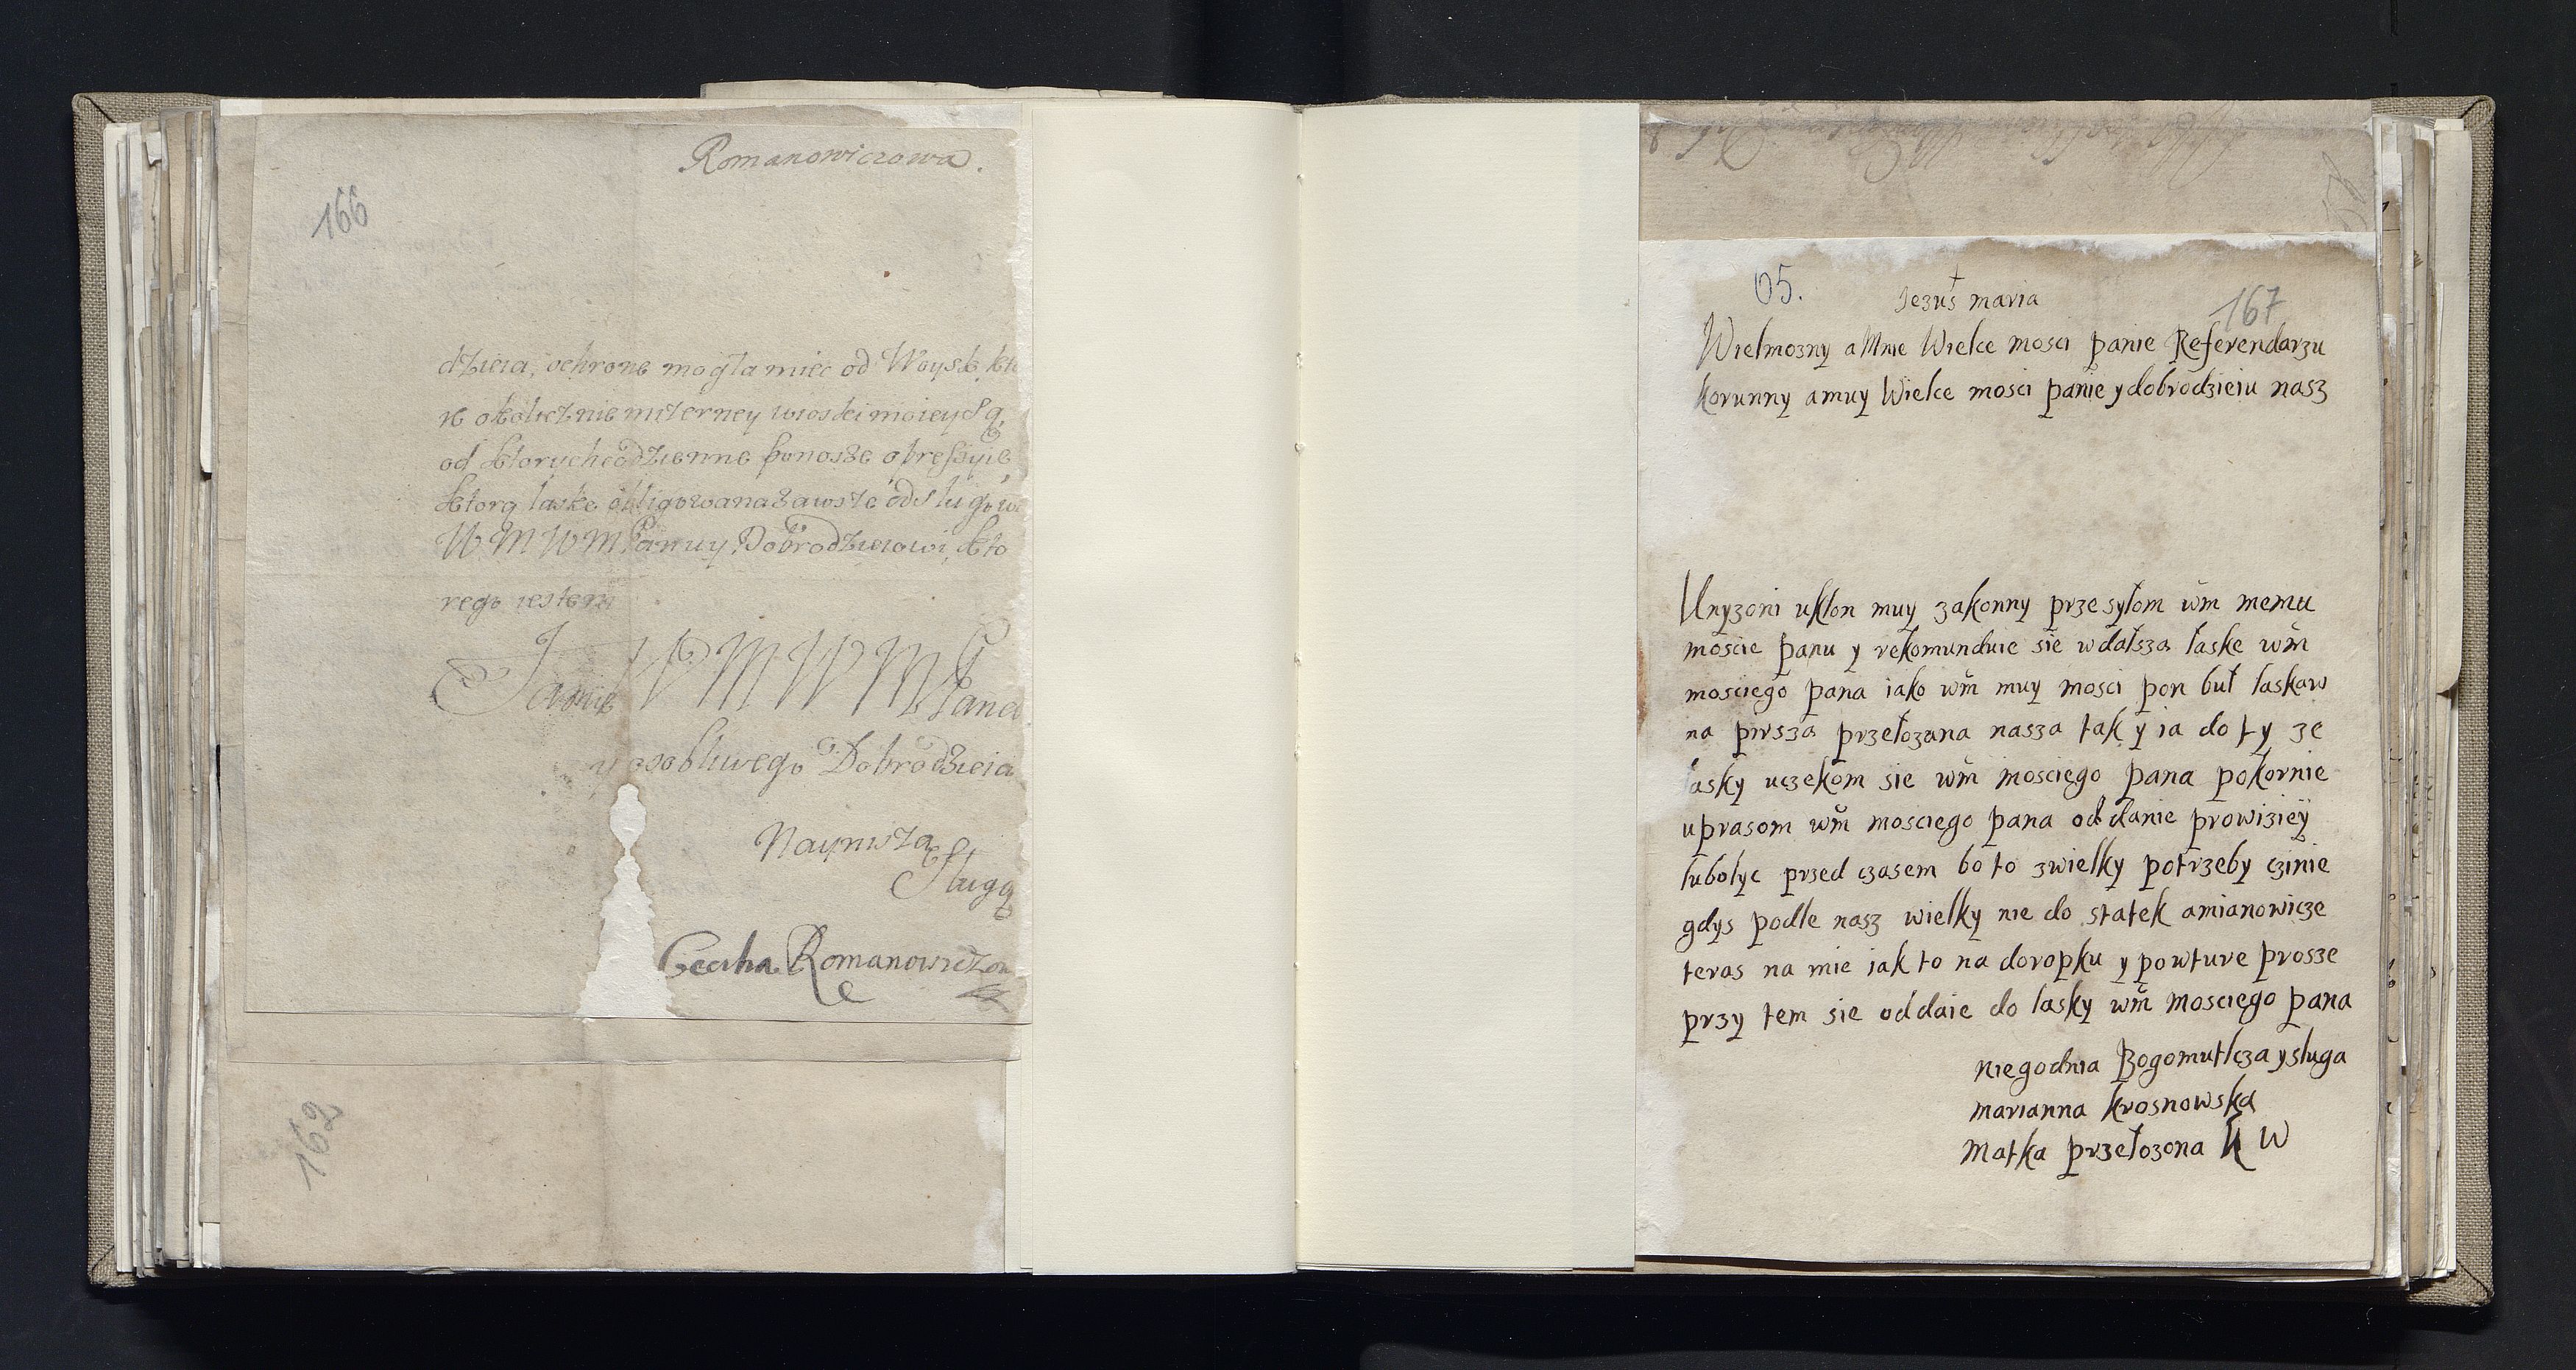 Romanowiczowa.
166
dzieia, ochrone mogła miec od Woysk, kto
w okolicznie mizerney wioski moiey są,
od ktorych codzienne ponosze opressyie
ktorą łaske obligowana zawsze odsługow
W M W M Panuy Dobrodzieiowi, kto
rego iestem
Jasnie W M W M Pana
y osobliwego Dobrodzieia
Nayniższa
Sługa
Cecilia Romanowiczow
162
05.
Jezus maria
167
Wielmozny a Mnie Wielce mosci panie Referendarzu
korunny a muy Wielce mosci panie y dobrodzieiu nasz
Unyzoni ukłon muy zakonny przesyłom wm memu
moscie panu y rekomunduie sie w dałsza łaske wm
mosciego pana iako wm muy mosci pon buł laskaw
na pirsza przełozana nasza tak y ia do ty ze
łasky uczekom sie wm mosciego pana pokornie
uprasom wm mosciego pana oddanie prowiziey
lubotyc przed czasem bo to z wielky potrzeby czinie
gdys podle nasz wielky nie do statek amianowicze
teras na mie iak to na doropku y powture prosze
przy tem sie oddaie do lasky wm mosciego pana
niegodnia Bogomutlcza y sługa
marianna krosnowska
Matka przełozona K W